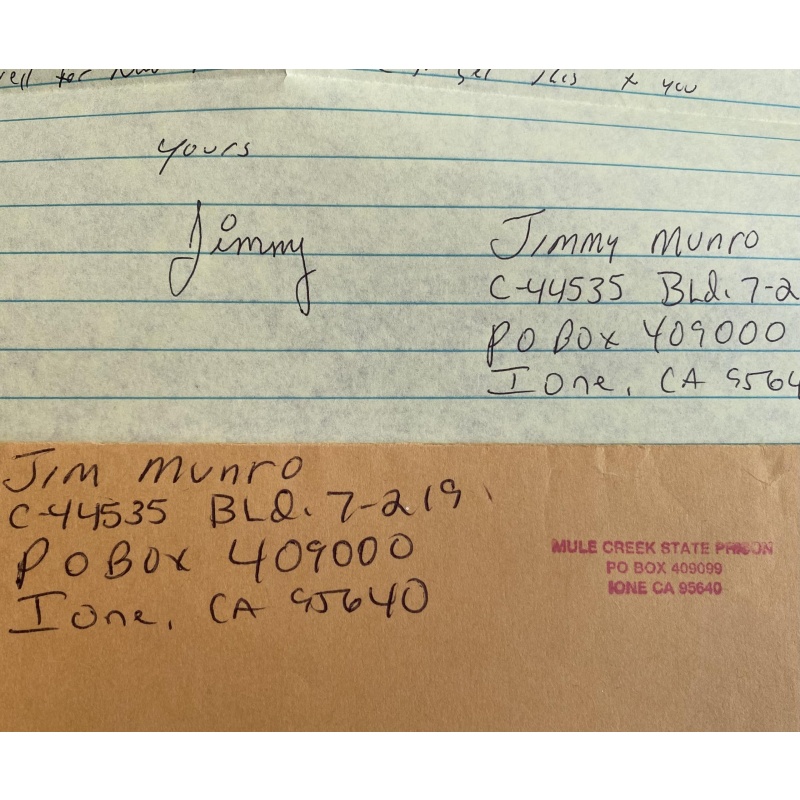 for Now this & you
yours
Jimmy
Jimmy Munro
C-44535 BLd. 7-2
PO Box 409000
Ione, CA 9564
Jim Munro
C-44535 BLd. 7-219
PO Box 409000
Ione, CA 95640
MULE CREEK STATE PRISON
PO BOX 409099
IONE CA 95640